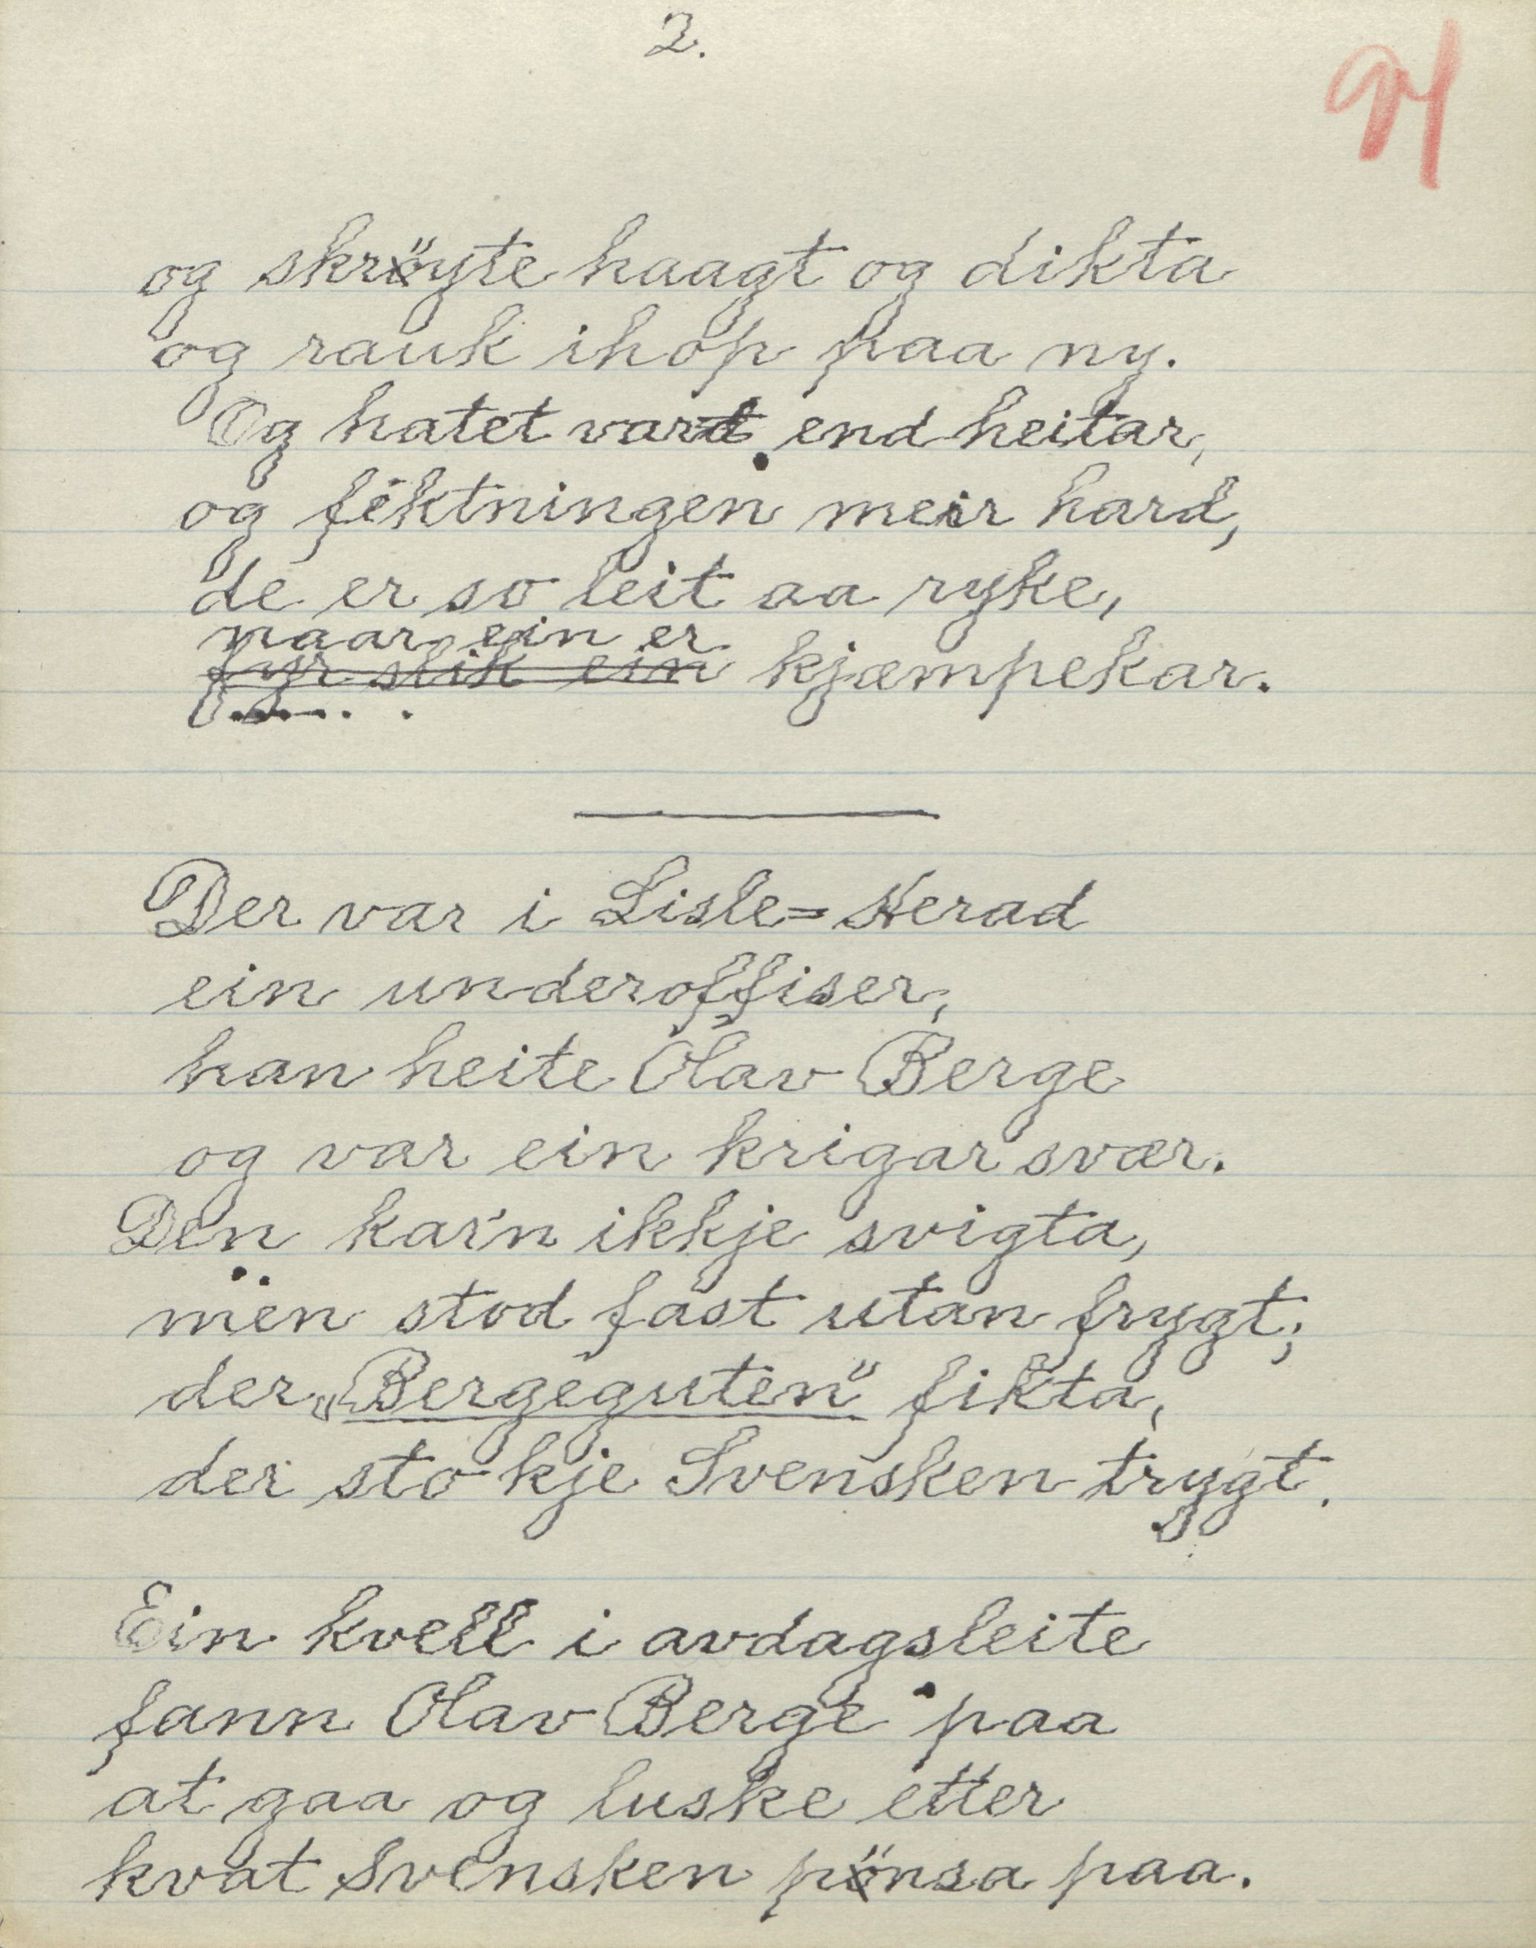 2.
91
og skröyte haagt og dikta
og rauk ihop paa ny.
Og hatet vardt end heitar,
og fektningen meir hard,
de er so leit aa ryke,
naar ein er
fyr slik ein kjæmpekar.
Der var i Lisle=Herad
ein underoffiser,
han heite Olav Berge
og var ein krigar svær.
Den kar'n ikkje svigta,
men stod fast utan frygt;
der „Bergeguten" fikta,
der sto kje Svensken trygt.
Ein kvell i avdagsleite
fann Olav Berge paa
at gaa og luske etter
kvat Svensken pönsa paa.